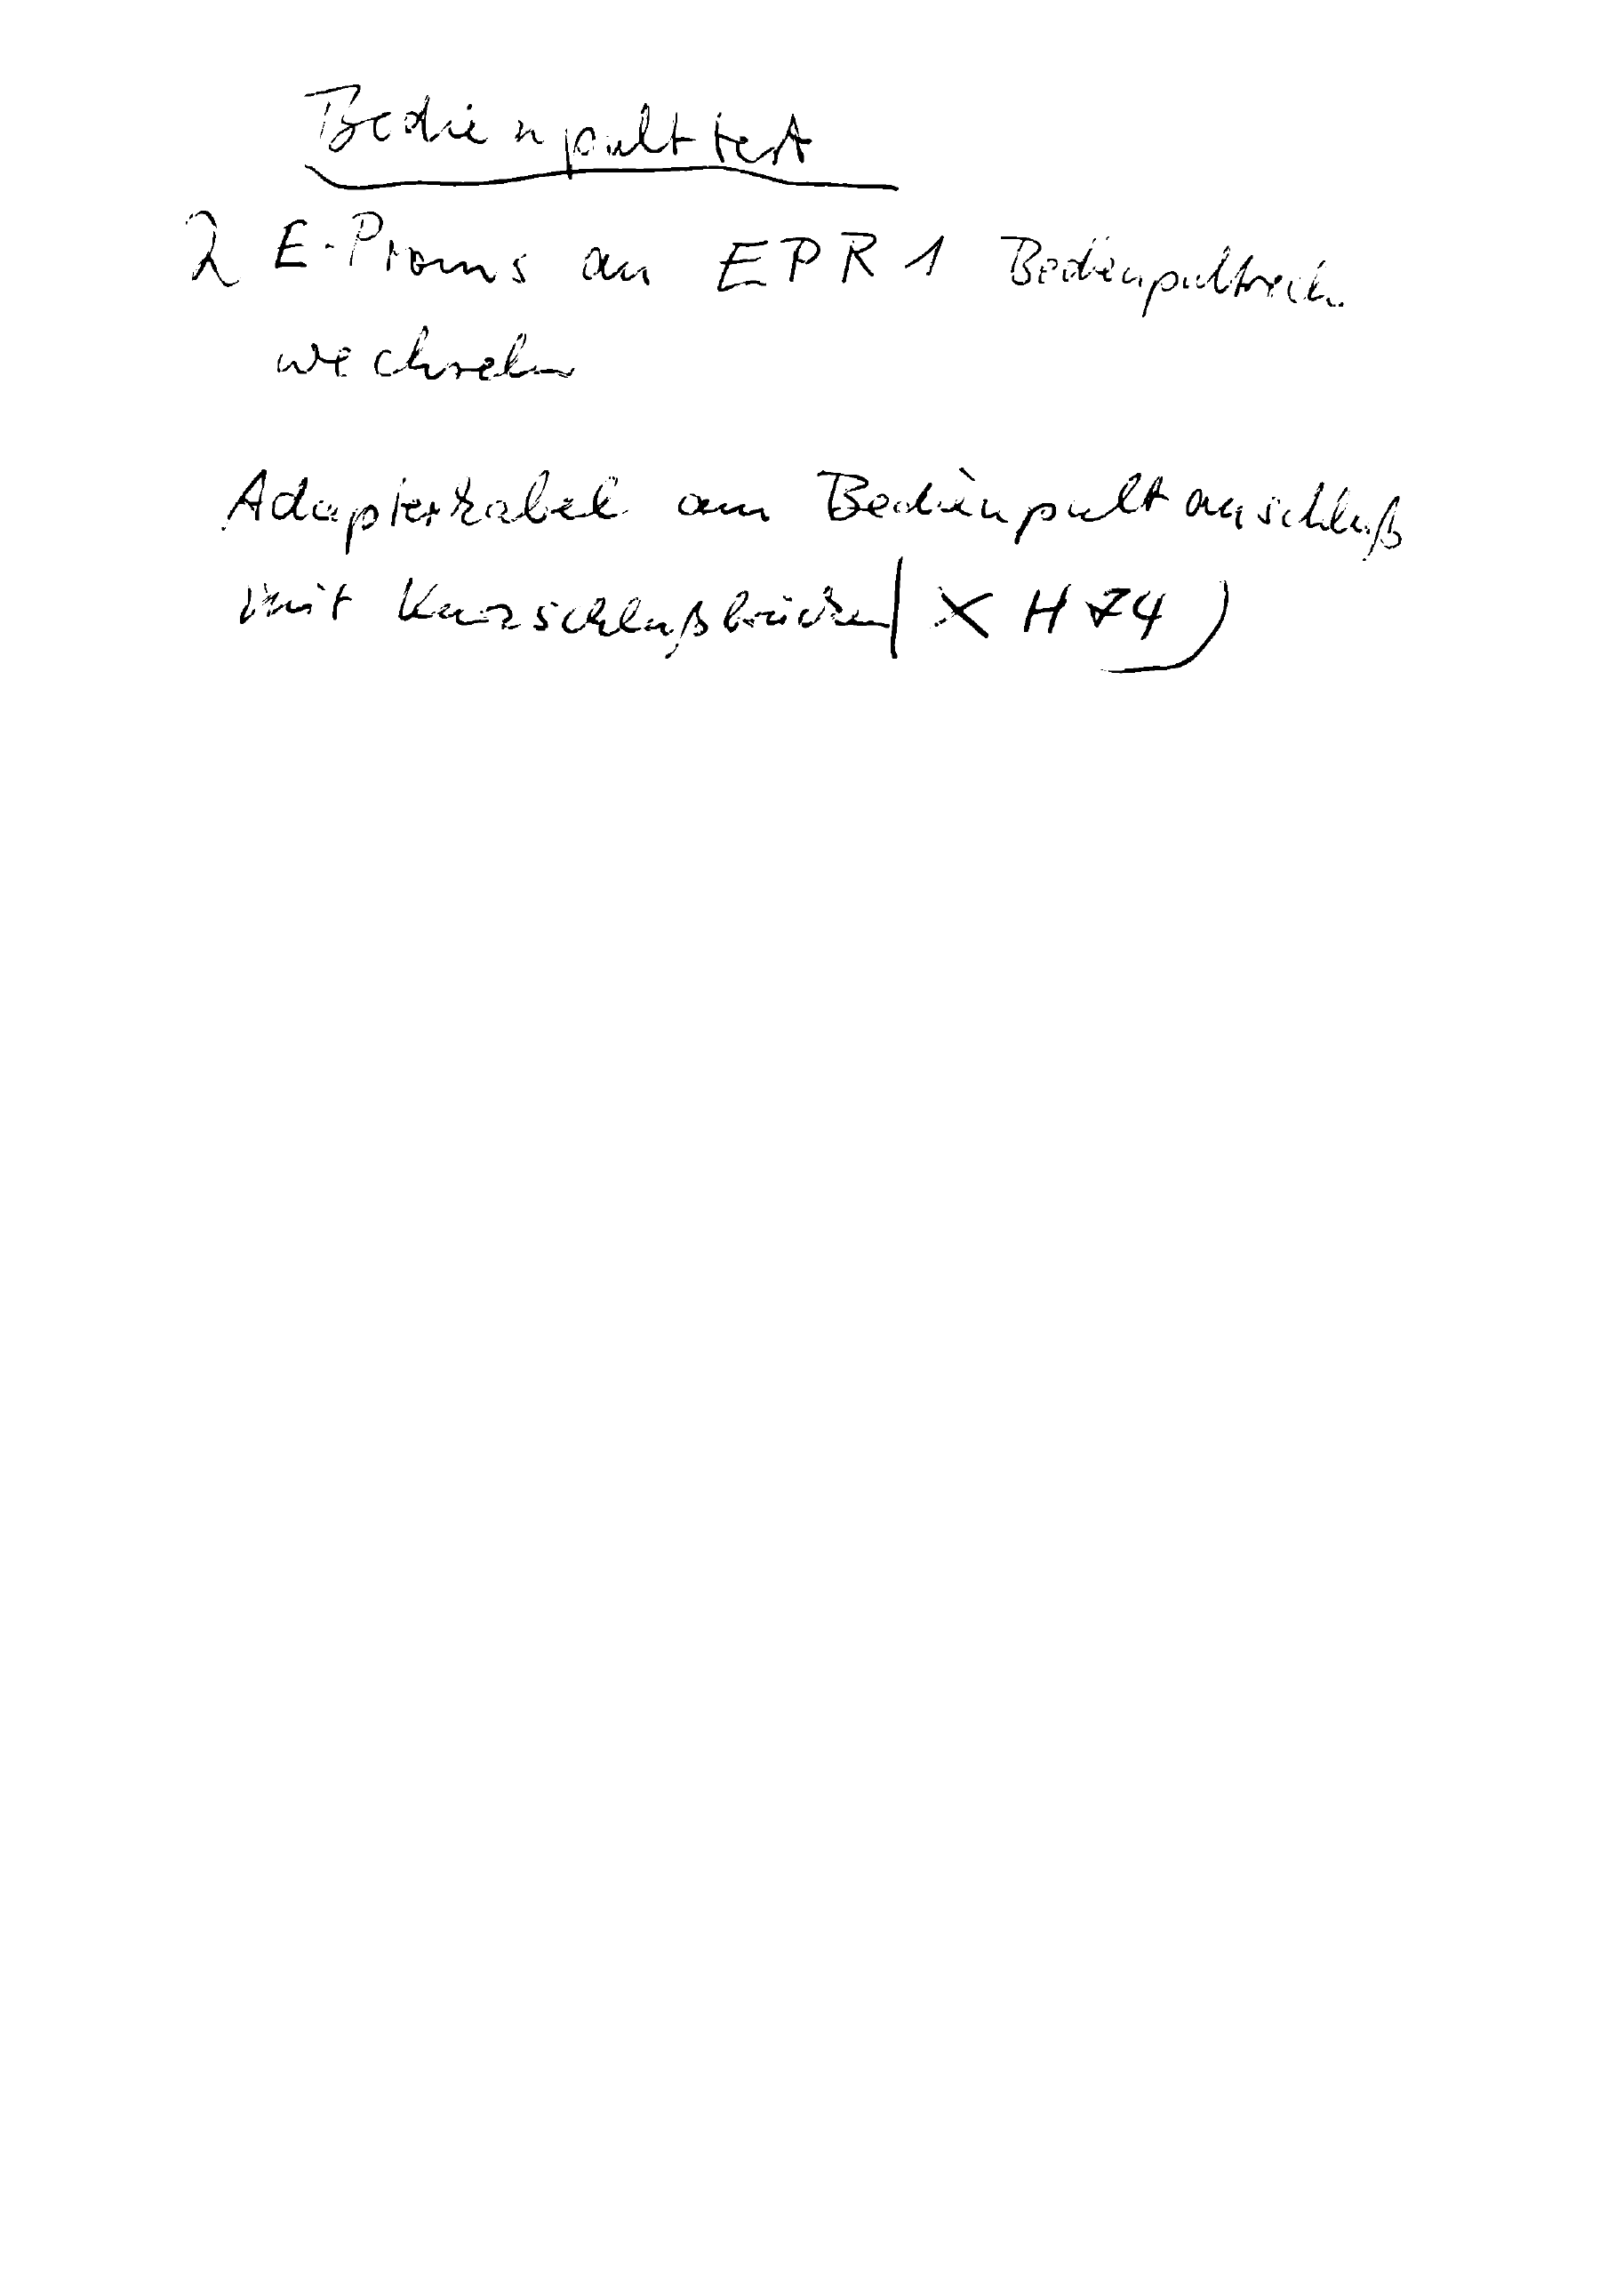 Bedienpulttest
2 E-Proms an EPR 1 Bedienpultrech.
wechseln
Adapterkabel am Bedienpultanschluß
mit Kurzschlußbrücken (XH74)